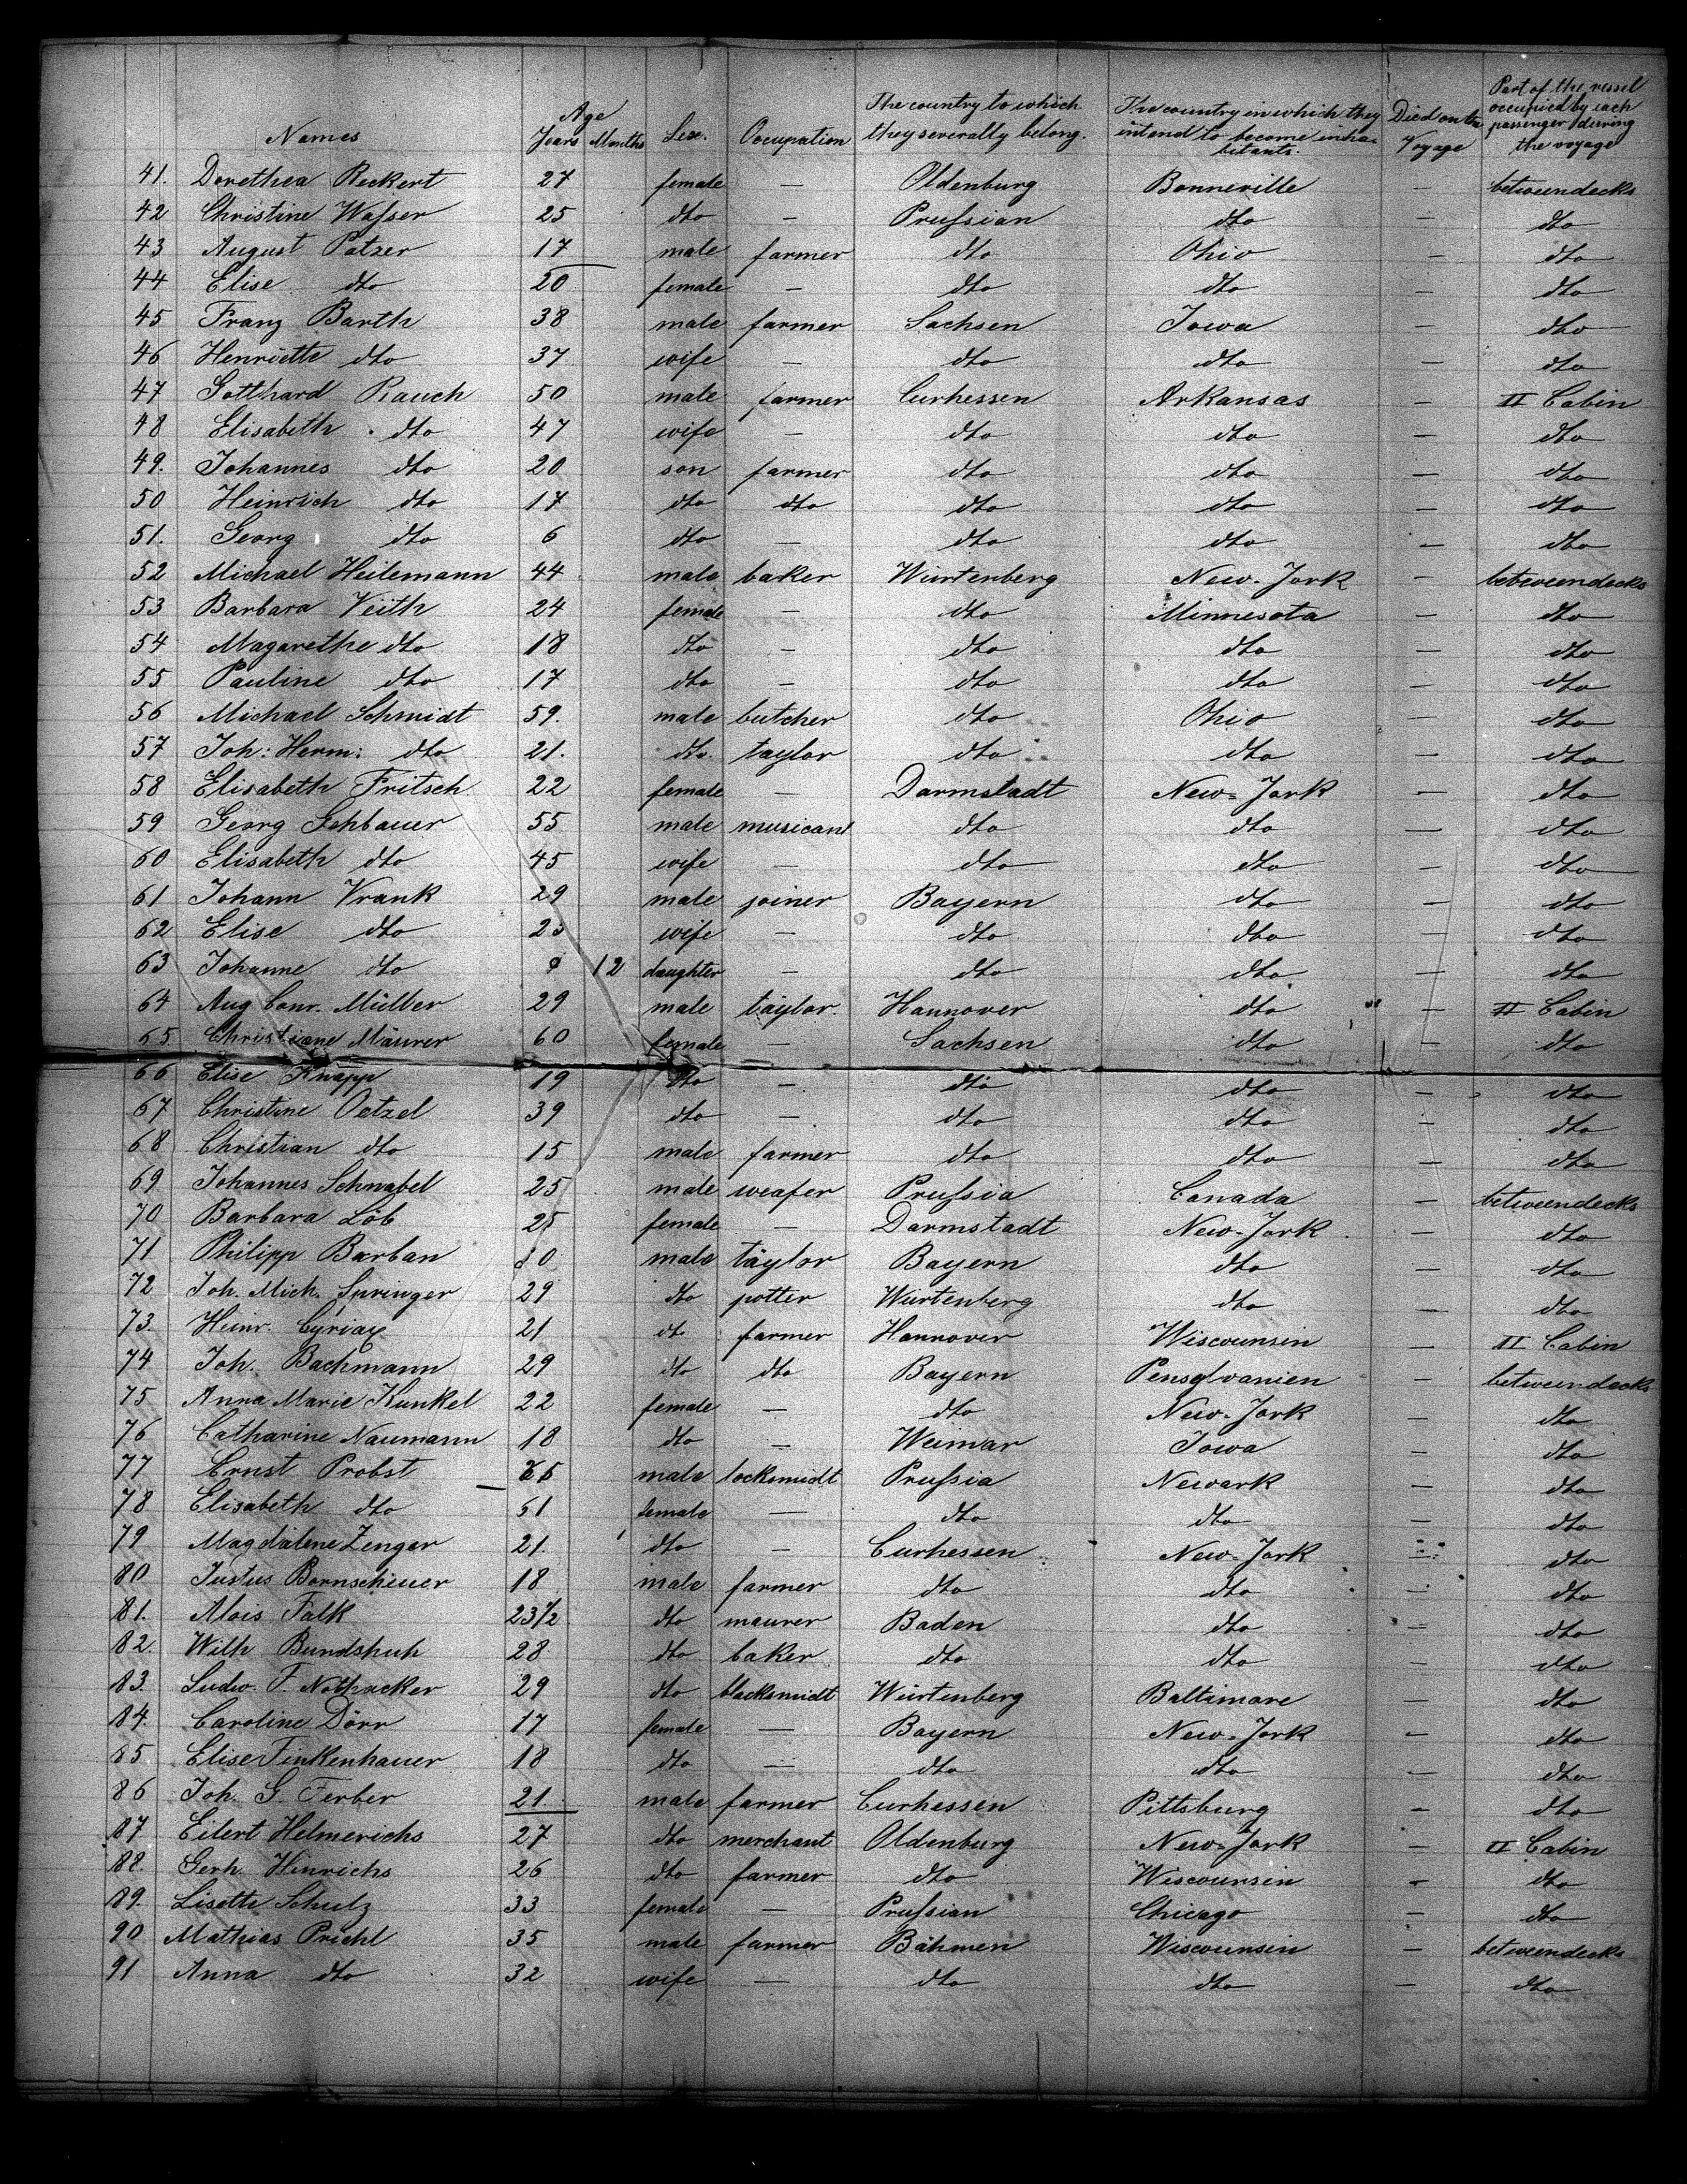 Names Age Years Months Sex. Occupation The country to which they severally belong. The country in which they intend to become inhabitants. Died on the Voyage Part of the vessel occupied by each passenger during the voyage
41. Dorethea Reckert 27 female — Oldenburg Bonneville — betweendecks
42 Christine Waſser 25 dto — Pruſsian dto — dto
43 August Patzer 17 male farmer dto Ohio — dto
44 Elise dto 20 female — dto dto — dto
45 Franz Barth 38 male farmer Sachsen Iowa — dto
46 Henriette dto 37 wife — dto dto — dto
47 Gotthard Rauch 50 male farmer Curhessen Arkansas — II Cabin
48 Elisabeth dto 47 wife — dto dto — dto
49. Johannes dto 20 son farmer dto dto — dto
50 Heinrich dto 17 dto dto dto dto — dto
51. Georg dto 6 dto — dto dto — dto
52 Michael Heilemann 44 male baker Würtenberg New-York — betweendecks
53 Barbara Veith 24 female — dto Minnesota — dto
54 Magarethe dto 18 dto — dto dto — dto
55 Pauline dto 17 dto — dto dto — dto
56 Michael Schmidt 59. male butcher dto Ohio — dto
57 Joh: Herm: dto 21. dto. taylor dto dto — dto
58 Elisabeth Fritsch 22 female — Darmstadt New-York — dto
59 Georg Gehbauer 55 male musicant dto dto — dto
60 Elisabeth dto 45 wife — dto dto — dto
61 Johann Vrank 29 male joiner Bayern dto — dto
62 Elise dto 23 wife — dto dto — dto
63 Johanne dto 12 daughter — dto dto — dto
64 Aug Conr. Müller 29 male taylor. Hannover dto — II Cabin
65 Christiane Mäurer 60 female — Sachsen dto — dto
66 Elise Knapp 19 dto — dto dto — dto
67 Christine Oetzel 39 dto — dto dto — dto
68 Christian dto 15 male farmer dto dto — dto
69 Johannes Schnabel 25 male weafer Pruſsia Canada — betweendecks
70 Barbara Löb 25 female — Darmstadt New-York — dto
71 Philipp Barban male taylor Bayern dto — dto
72 Joh. Mich. Springer 29 dto potter Würtenberg dto — dto
73. Heinr. Cyriax 21 dto farmer Hannover Wiscounsin — II Cabin
74 Joh. Bachmann 29 dto dto Bayern Pensylvanien — betweendecks
75 Anna Marie Kunkel 22 female — dto New-York — dto
76 Catharine Naumann 18 dto — Weimar Iowa — dto
77 Ernst Probst male locksmidt Pruſsia Newark — dto
78 Elisabeth dto 51 female — dto dto — dto
79 Magdalene Zenger 21. dto — Curhessen New-York — dto
80 Justus Bornscheuer 18 male farmer dto dto — dto
81. Alois Falk 23½ dto maurer Baden dto — dto
82. Wilh Bundshuh 28 dto baker dto dto — dto
83. Ludw. F. Nothacker 29 dto blacksmidt Würtenberg Baltimore — dto
84. Caroline Dörr 17 female — Bayern New-York — dto
85 Elise Finkenhauer 18 dto — dto dto — dto
86 Joh. G. Ferber 21. male farmer Curhessen Pittsburg — dto
87 Eilert Helmerichs 27 dto merchant Oldenburg New-York — II Cabin
88. Gerh. Hinrichs 26 dto farmer dto Wiscounsin — dto
89. Lisette Schulz 33 female — Pruſsian Chicago — dto
90 Mathias Priehl 35 male farmer Böhmen Wiscounsin — betweendecks
91 Anna dto 32 wife — dto dto — dto